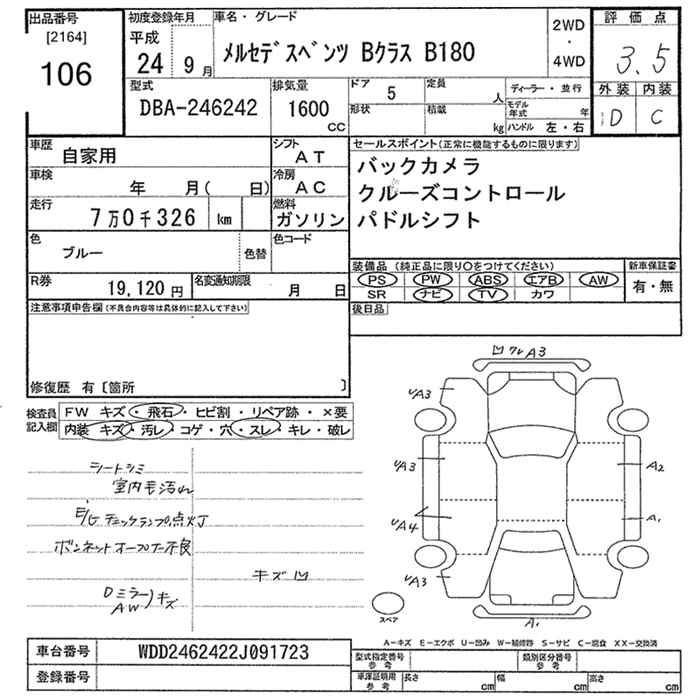 出品番号 初度登録年月 車名・グレード 2WD ・ 4WD 評価点
[2164] 平成
106 24 年 9 月 メルセデスベンツ Bクラス B180 3.5
型式 排気量 ドア 5 定員 人 ディーラー・並行 外装 内装
DBA-246242 1600 cc 形状 積載 kg モデル年式 年 D C
ハンドル 左・右
車歴 自家用 シフト AT セールスポイント(正常に機能するものに限ります)
車検 年 月( 日) 冷房 AC バックカメラ
走行 7万0千326 km 燃料 ガソリン クルーズコントロール
パドルシフト
色 ブルー 色替 色コード
装備品 (純正品に限り○をつけてください) 新車保証書
R券 19,120円 名変通知期限 月 日 PS PW ABS エアB AW 有・無
SR ナビ TV カワ
注意事項申告欄(不具合内容等は具体的に記入して下さい) 後日品
修復歴 有 [箇所 ]
検査員記入欄 FW キズ・飛石・ヒビ割・リペア跡・×要
内装 キズ・汚レ・コゲ・穴・スレ・キレ・破レ
凹 ワレ A3
シートシミ
室内毛汚れ
E/G チェックランプ点灯
ボンネットオープナー不良
キズ凹
Dミラー キズ
AW
UA3
UA3
UA4
UA3
A2
A1
A1
スペア
A-キズ E-エクボ U-凹み W-補修跡 S-サビ C-腐食 XX-交換済
車台番号 WDD2462422J091723 型式指定番号 参考 類別区分番号 参考
登録番号 車庫証明用 参考 長さ cm 幅 cm 高さ cm